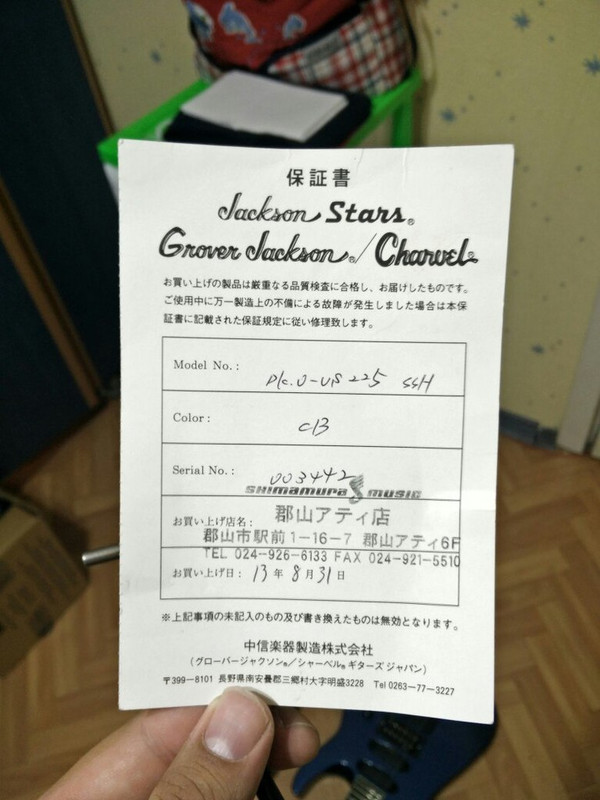 保証書
Jackson Stars®
Grover Jackson®/Charvel®
お買い上げの製品は厳重なる品質検査に合格し、お届けしたものです。
ご使用中に万一製造上の不備による故障が発生しました場合は本保
証書に記載された保証規定に従い修理致します。
Model No.: 225 SSH
Color: CB
Serial No.: 003442
SHIMAMURA MUSIC
お買い上げ店名: 郡山アティ店
郡山市駅前1-16-7 郡山アティ6F
TEL 024-926-6133 FAX 024-921-5510
お買い上げ日: 13年8月31日
※上記事項の未記入のもの及び書き換えたものは無効となります。
中信楽器製造株式会社
(グローバージャクソン®/シャーベル®ギターズ ジャパン)
〒399-8101 長野県南安曇郡三郷村大字明盛3228 Tel 0263-77-3227